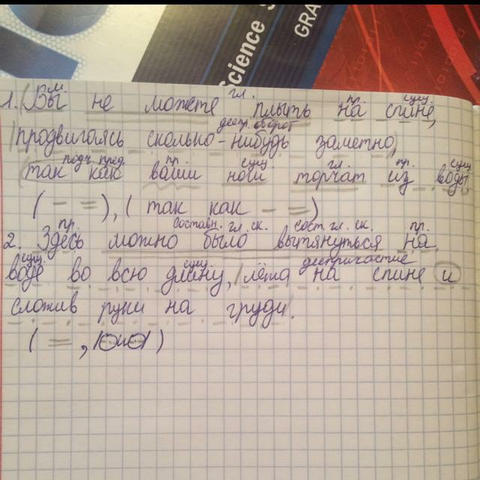 Science S
GRA
м. гл. пр. сущ.
1. (Вы не можете плыть на спине,
дееpr. оборот
продвигаясь сколько-нибудь заметно,)
подч. пред. пр. сущ. гл. пр. сущ.
(так как ваши ноги торчат из воды)
( - = ), ( так как - = )
пр. составн. гл. ск. сост. гл. ск. пр.
2. Здесь можно было вытянуться на
сущ. сущ. деепричастие
воде во всю длину, /лёжа на спине и
сложив руки на груди.
( = , |О и О| )